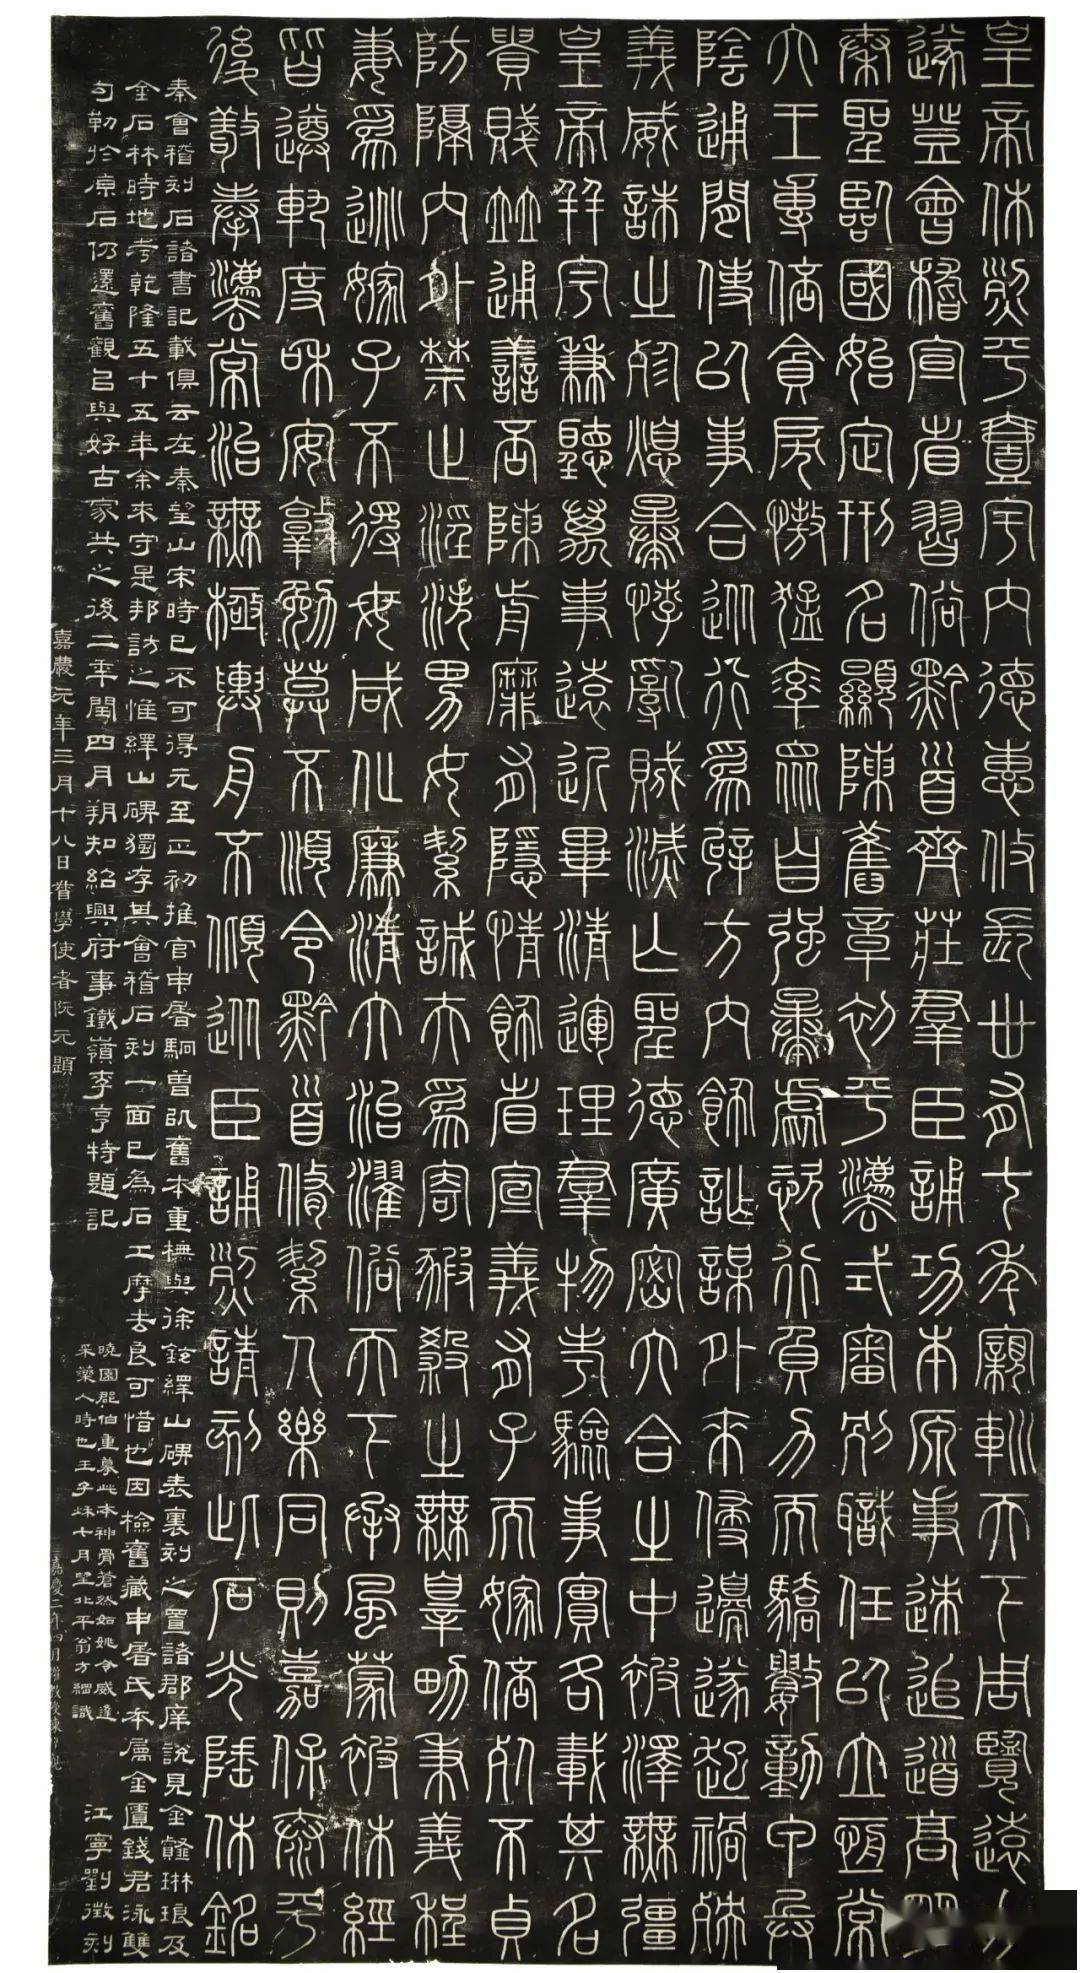 皇帝休烈平壹宇内德惠攸長丗有七年親軔天下周覽遠方
遂登會稽宣省習俗黔首齊莊羣臣誦功本原事迹追道高明
秦聖臨國始定刑名顯陳舊章初平灋式審别職任以立恆常
六王專倍貪戾慠猛率眾自強暴虐恣行負力而驕數動甲兵
陰通閒使以事合從行爲辟方内飾詐謀外來侵邊遂起禍殃
義威誅之殄熄暴悖亂賊滅亡聖德廣密六合之中被澤無疆
皇帝并宇兼聽萬事遠近畢清運理羣物考驗事實各載其名
貴賤並通善否陳前靡有隱情飾省宣義有子而嫁倍死不貞
防隔内外禁止淫泆男女絜誠夫爲寄豭殺之無辠男秉義程
妻爲逃嫁子不得母咸化廉清大治濯俗天下承風蒙被休經
皆遵軌度和安敦勉莫不順令黔首脩絜人樂同則嘉保泰平
後敬奉灋常治無極輿舟不傾從臣誦烈請刻此石光陲休銘
秦會稽刻石諸書記載俱云在秦望山宋時已不可得元至正初推官申屠駉曾以舊本重橅與徐鉉繹山碑表裏刻之置諸郡庠說見金薤琳琅及
金石林時地考乾隆五十五年余來守是邦訪之惟繹山碑獨存其會稽石刻一面已為石工摩去良可惜也因檢舊藏申屠氏本屬金匱錢君泳雙
勾勒於原石仍還舊觀吕與好古家共之後二年閏四月朔知紹興府事鐵嶺李亨特題記
曉園郡伯重摹此本神骨蒼然如姚令威逢
采藥人時也壬子秋七月望北平翁方綱識
江寧劉徵刻
嘉慶元年三月十八日督學使者阮元題
嘉慶二年四月